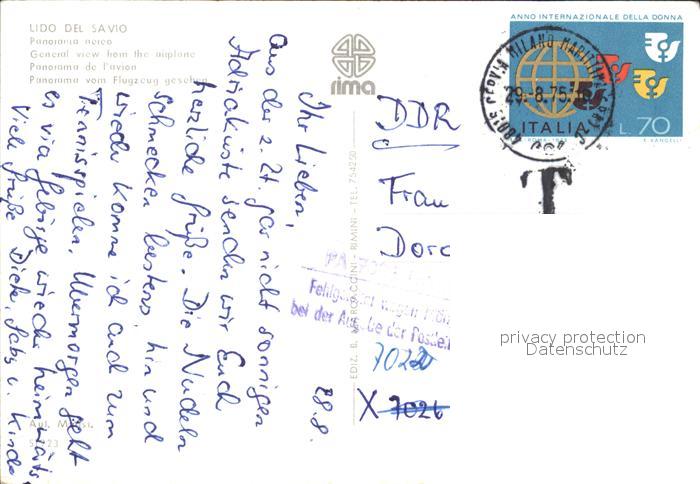 LIDO DEL SAVIO
Panorama aereo
General view from the airplane
Panorama de l'avion
Panorama vom Flugzeug gesehen
rima
ANNO INTERNAZIONALE DELLA DONNA
ITALIA L. 70
48016 CERVIA MILANO MARITTIMA
29.-8.75
T
28.8.
Ihr Lieben,
aus der z. Zt. gar nicht sonnigen
Adriaküste senden wir Euch
herzliche Grüße. Die Nudeln
schmecken bestens, hin und
wieder komme ich auch zum
Tennisspielen. Übermorgen geht
es via Gebirge wieder heimwärts
Viele Grüße Dieter, Gaby u. Kinder
DDR
Frau
Doro
Fehlgeleitet wegen
bei der Angabe der Postleit
7022
X 7026
EDIZ. B. MARCACCINI - RIMINI - TEL. 754250
privacy protection
Datenschutz